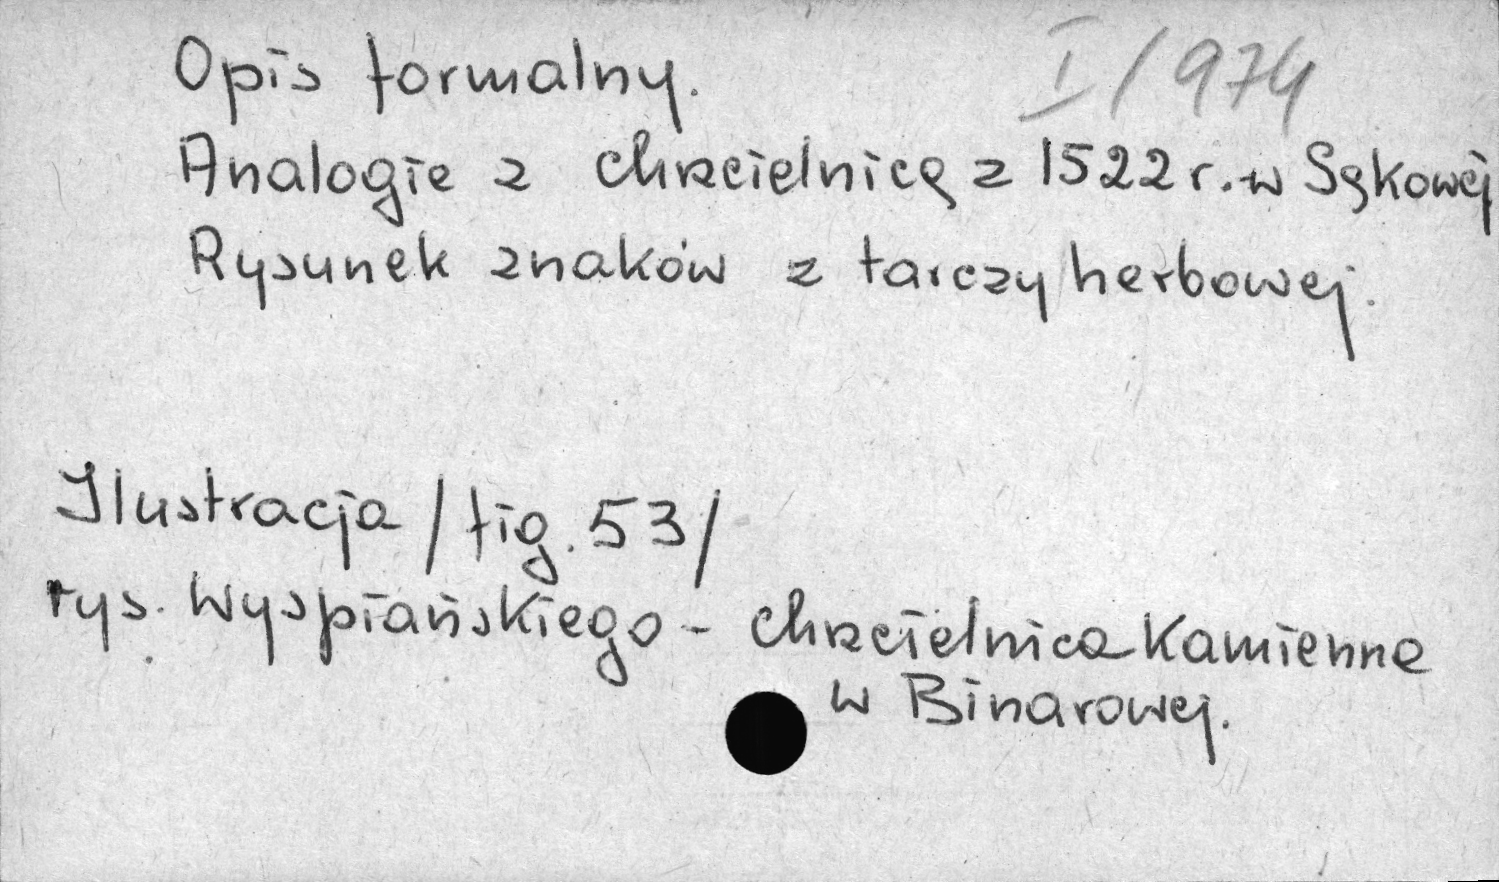 I/974
Opis formalny.
Analogie z chrzcielnicą z 1522 r. w Sękowej
Rysunek znaków z tarczy herbowej.
Ilustracja /fig. 53/
rys. Wyspiańskiego - chrzcielnica kamienna
w Binarowej.